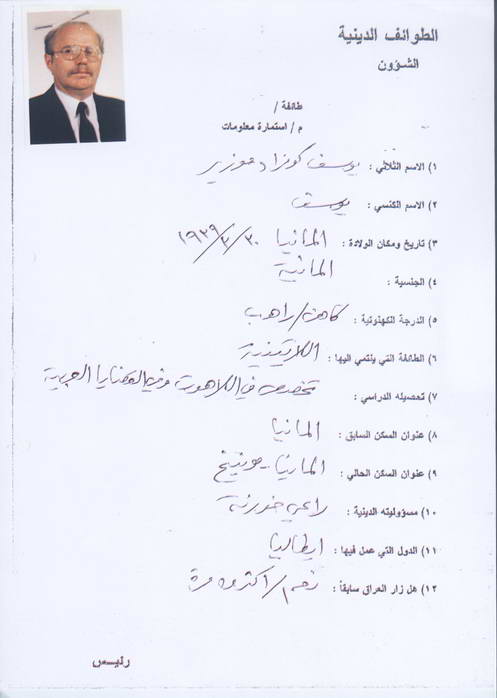 الطوائف الدينية
الشؤون
طائفة /
م / استمارة معلومات
١) الاسم الثلاثي : يوسف كونراد موزير
٢) الاسم الكنسي : يوسف
٣) تاريخ ومكان الولادة : المانيا ٣٠/٣/١٩٣٩
٤) الجنسية : المانية
٥) الدرجة الكهنوتية : كاهن/راهب
٦) الطائفة التي ينتمي اليها : اللاتينية
٧) تحصيله الدراسي : تخصص في اللاهوت وفي القضايا العربية
٨) عنوان السكن السابق : المانيا
٩) عنوان السكن الحالي : المانيا - ميونيخ
١٠) مسؤوليته الدينية : راعي خورنة
١١) الدول التي عمل فيها : ايطاليا
١٢) هل زار العراق سابقاً : نعم/اكثر من مرة
رئيس